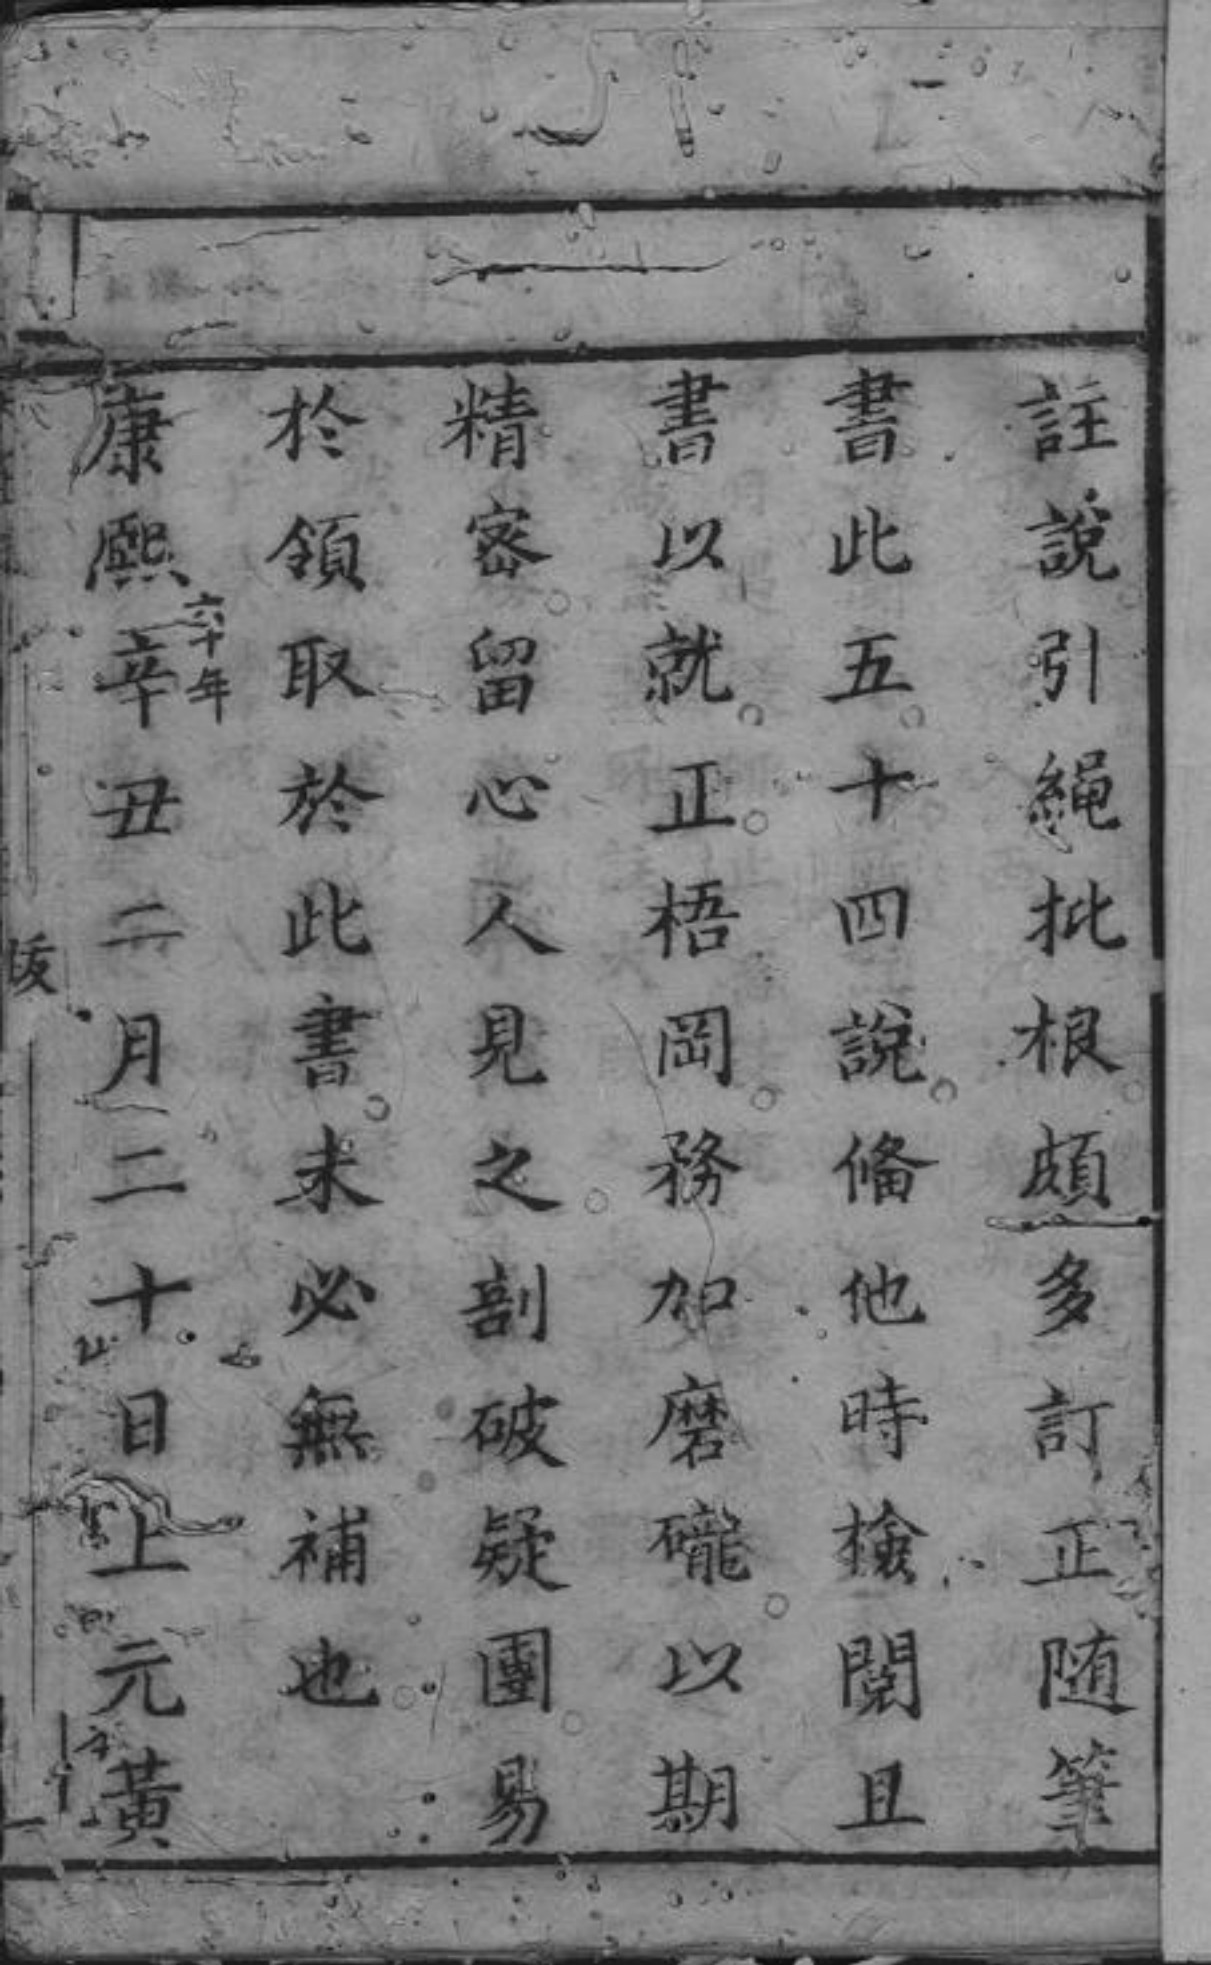 註說引繩批根頗多訂正随筆
書此五十四說備他時檢閱且
書以就正梧岡務加磨礲以期
精密留心人見之剖破疑團易
於領取於此書未必無補也
康熙辛丑二月二十日上元黃
六十年